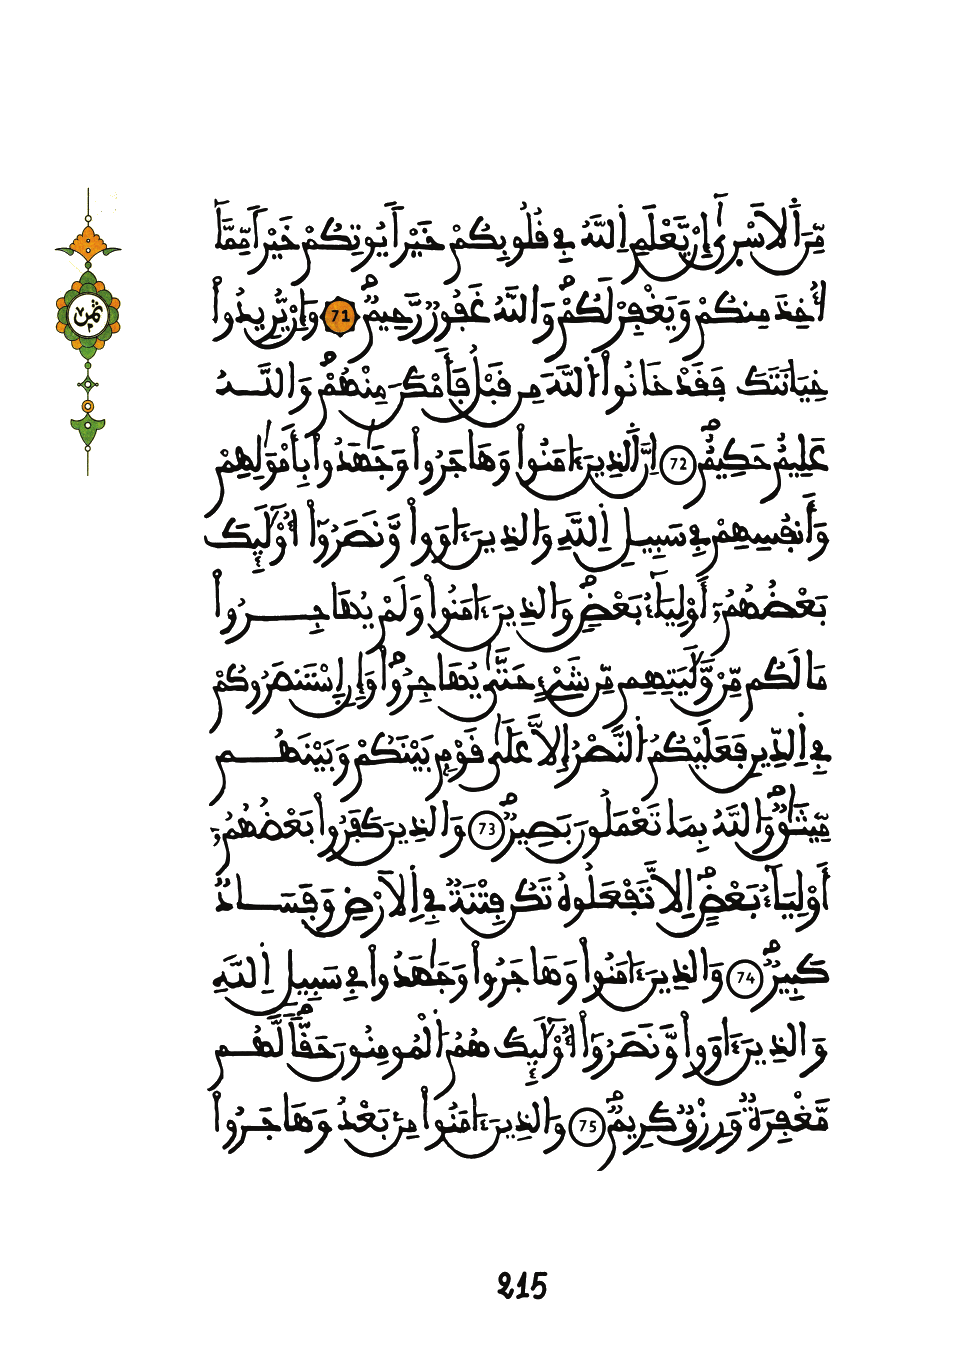 مِّنَ أَلَاسْرَىٰٓ إِنْ يَّعْلَمِ اِللَّهُ فِے قُلُوبِكُمْ خَيْراً يُوتِكُمْ خَيْراً مِّمَّآ
أُخِذَ مِنكُمْ وَيَغْفِرْ لَكُمْ وَاللَّهُ غَفُورٌ رَّحِيمٌ 71 وَإِنْ يُّرِيدُواْ
خِيَانَتَكَ فَقَدْ خَانُواْ اُللَّهَ مِن قَبْلُ فَأَمْكَنَ مِنْهُمْ وَاللَّهُ
عَلِيمٌ حَكِيمٌ 72 اِنَّ اَلذِينَ ءَامَنُواْ وَهَاجَرُواْ وَجَٰهَدُواْ بِأَمْوَٰلِهِمْ
وَأَنفُسِهِمْ فِے سَبِيلِ اِللَّهِ وَالذِينَ ءَاوَواْ وَّنَصَرُوٓاْ أُوْلَٰٓئِكَ
بَعْضُهُمُۥٓ أَوْلِيَآءُ بَعْضٍ وَالذِينَ ءَامَنُواْ وَلَمْ يُهَاجِرُواْ
مَا لَكُم مِّنْ وَّلَٰيَتِهِم مِّن شَےْءٍ حَتَّىٰ يُهَاجِرُواْ وَإِنِ اِسْتَنصَرُوكُمْ
فِے اِلدِّينِ فَعَلَيْكُمُ اُلنَّصْرُ إِلَّا عَلَىٰ قَوْمِۢ بَيْنَكُمْ وَبَيْنَهُم
مِّيثَٰقٌ وَاللَّهُ بِمَا تَعْمَلُونَ بَصِيرٌ 73 وَالذِينَ كَفَرُواْ بَعْضُهُمُۥٓ
أَوْلِيَآءُ بَعْضٍ اِلَّا تَفْعَلُوهُ تَكُن فِتْنَةٌ فِے اِلَارْضِ وَفَسَادٌ
كَبِيرٌ 74 وَالذِينَ ءَامَنُواْ وَهَاجَرُواْ وَجَٰهَدُواْ فِے سَبِيلِ اِللَّهِ
وَالذِينَ ءَاوَواْ وَّنَصَرُوٓاْ أُوْلَٰٓئِكَ هُمُ اُلْمُومِنُونَ حَقّاً لَّهُم
مَّغْفِرَةٌ وَرِزْقٌ كَرِيمٌ 75 وَالذِينَ ءَامَنُواْ مِنۢ بَعْدُ وَهَاجَرُواْ
ثمن
215